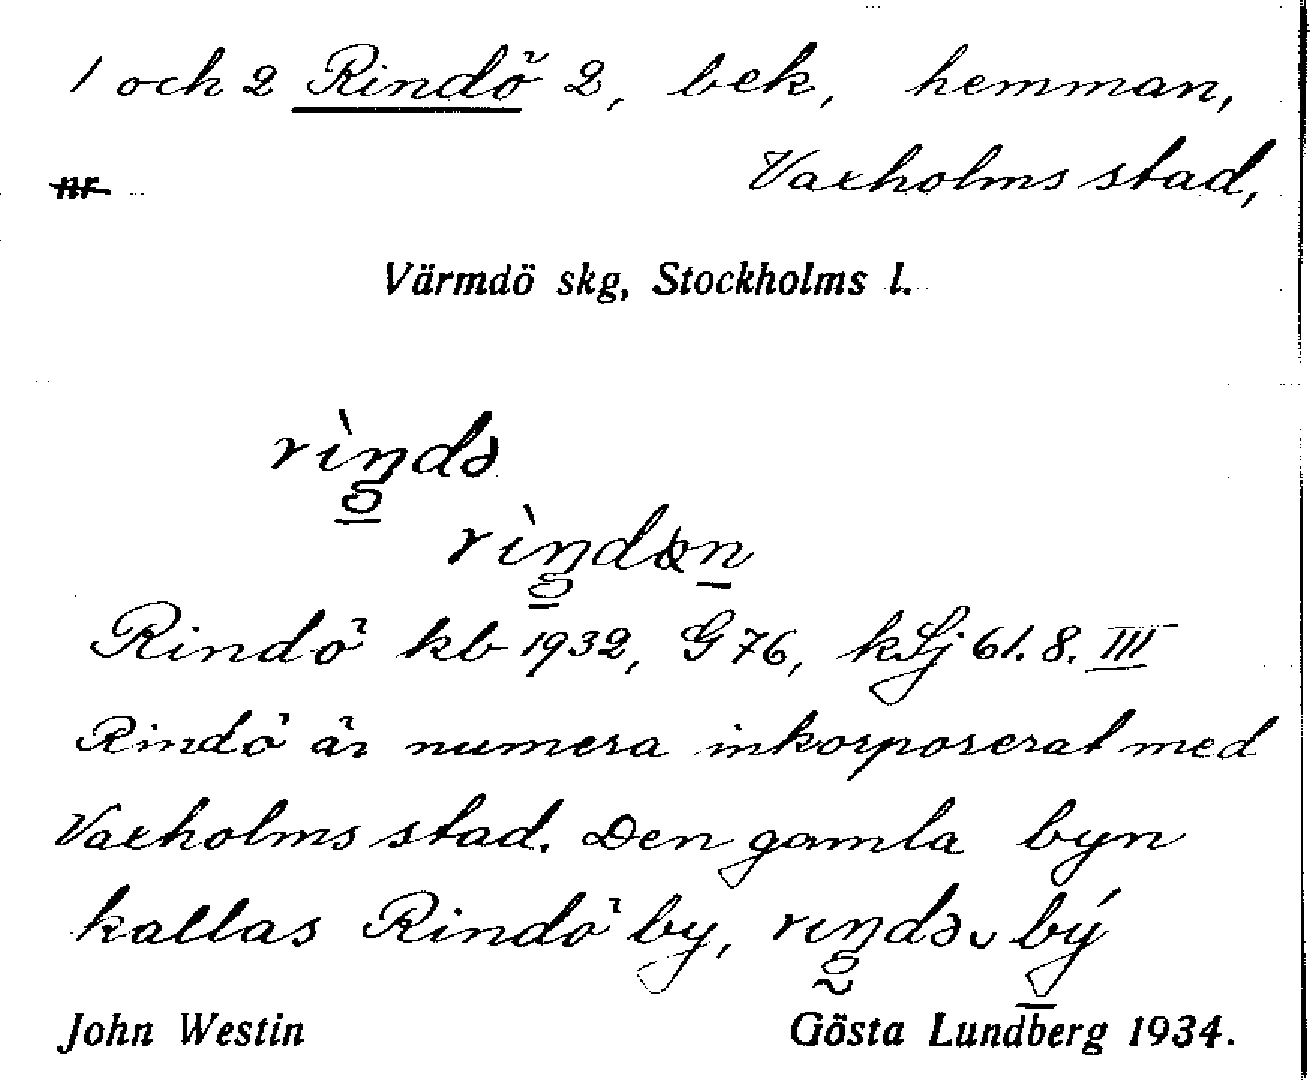 1 och 2 Rindö 2, bek, hemman,
Vaxholms stad,
nr
Värmdö skg, Stockholms l.
rìŋdə
rìŋdən
Rindö kb 1932, G 76, kSj 61.8. III
Rindö är numera inkorporerat med
Vaxholms stad. Den gamla byn
kallas Rindö by, rıŋdə ᴗ bý
John Westin
Gösta Lundberg 1934.